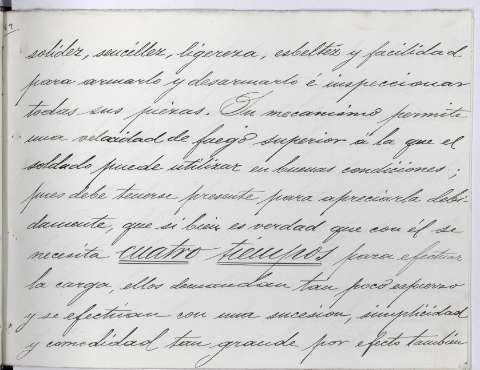 solidez, sencillez, ligereza, esbeltez y facilidad
para armarlo y desarmarlo é inspeccionar
todas sus piezas. Su mecanismo permite
una velocidad de fuego superior á la que el
soldado puede utilizar en buenas condiciones;
pues debe tenerse presente para apreciarla debi-
damente, que si bien es verdad que con él se
necesita cuatro tiempos para efectuar
la carga, ellos demandan tan poco esfuerzo
y se efectúan con una sucesion, simplicidad
y comodidad tan grande por efecto también